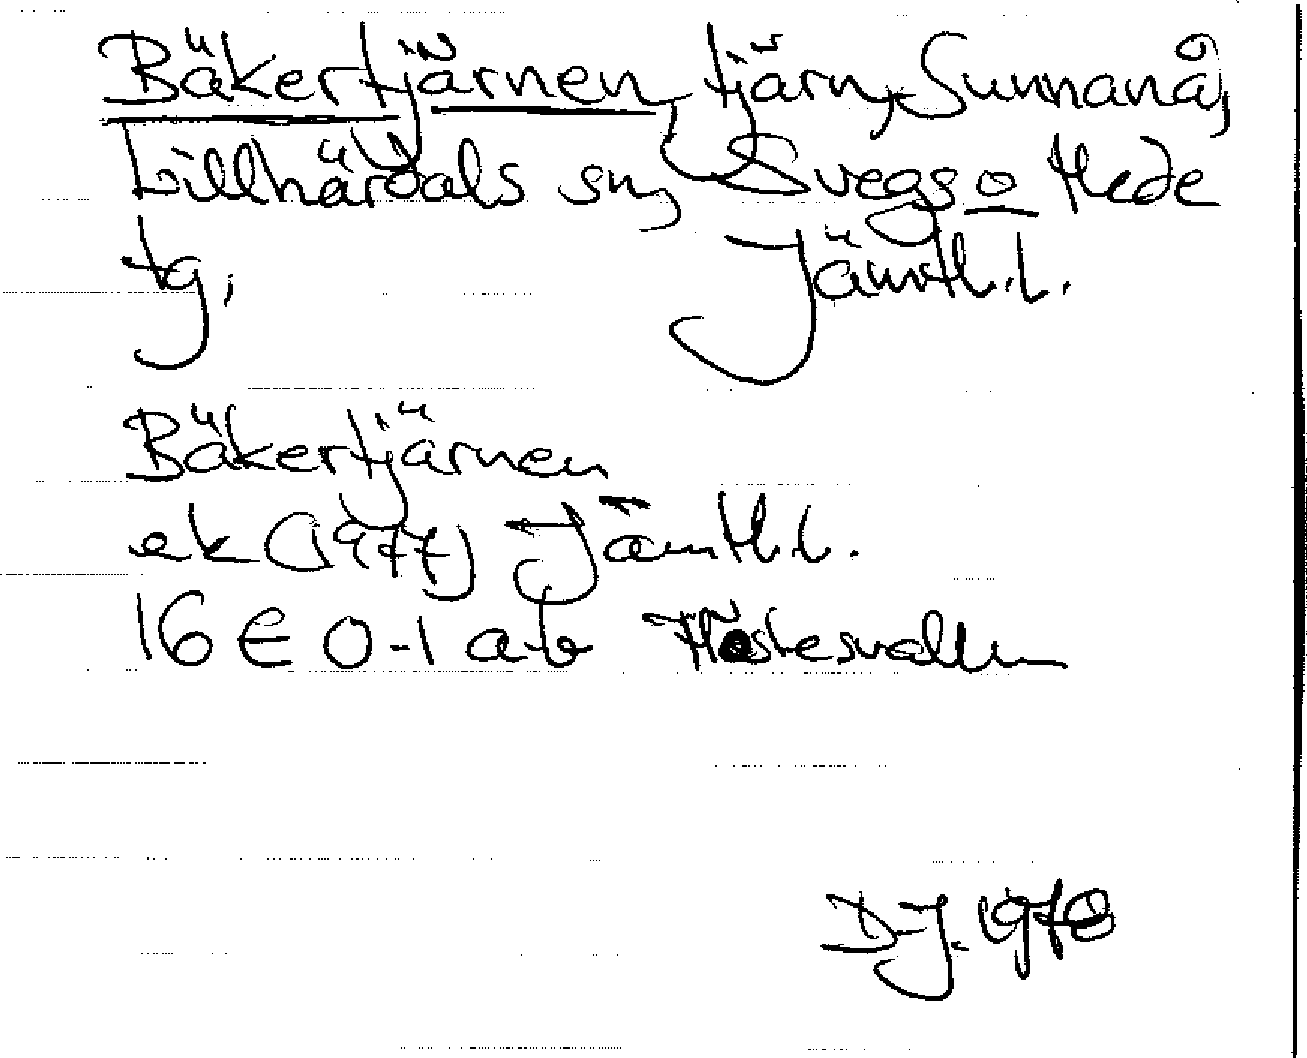 Bäkertjärnen, tjärn, Sunnanå,
Lillhärdals sn, Svegs o Hede
tg,    Jämtl.l.
Bäkertjärnen
ek (1977) Jämtl.l.
16 E 0-1 a-b
D.J. 1978